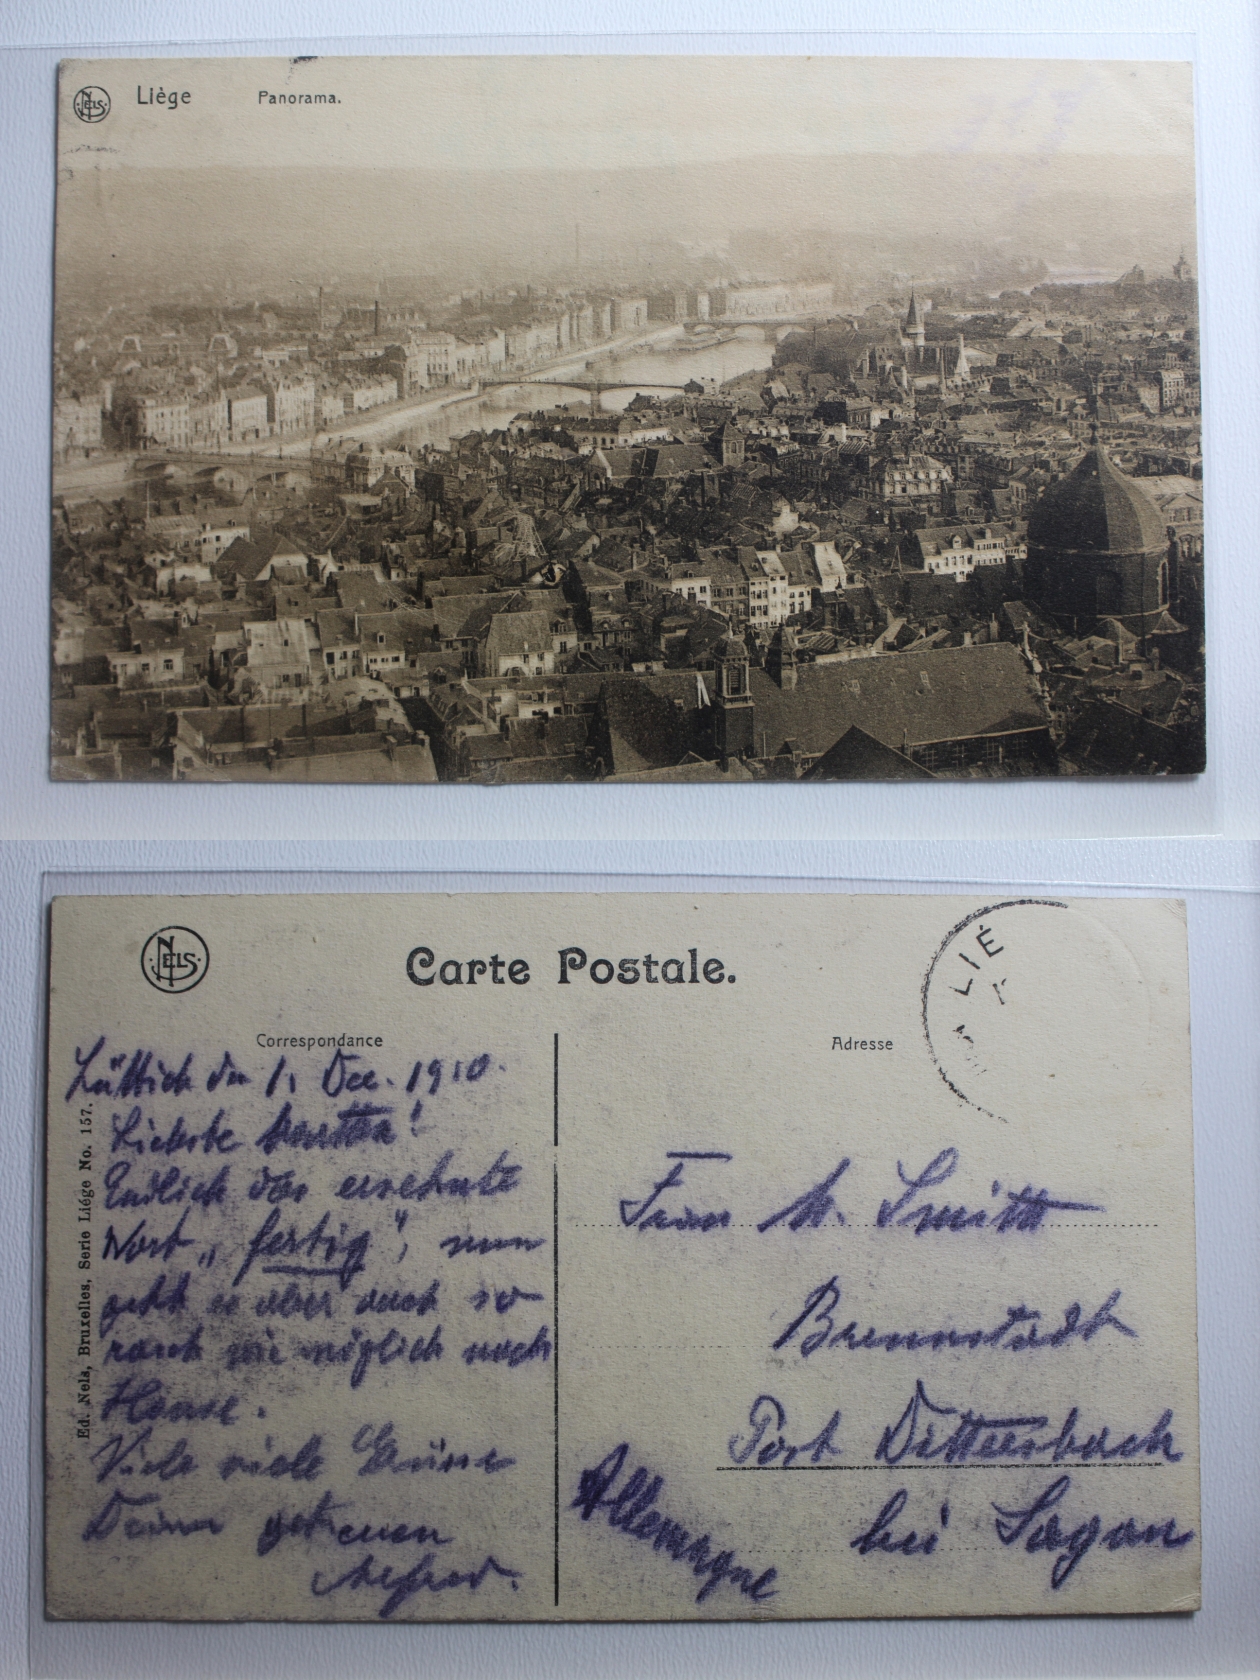 NELS
Liège Panorama.
NELS
Carte Postale.
LIÉ
Correspondance
Adresse
Lüttich den 1. Dec. 1910.
Liebste
Endlich das ersehnte
Wort „fertig“, nun
geht es aber auch so
rasch wie möglich nach
Hause.
Viele viele Grüsse
Deines getreuen
Alfred.
Ed. Nels, Bruxelles, Serie Liége No. 157.
Frau M. Smith
Brennstadt
Post Dittersbach
bei Sagan
Allemagne